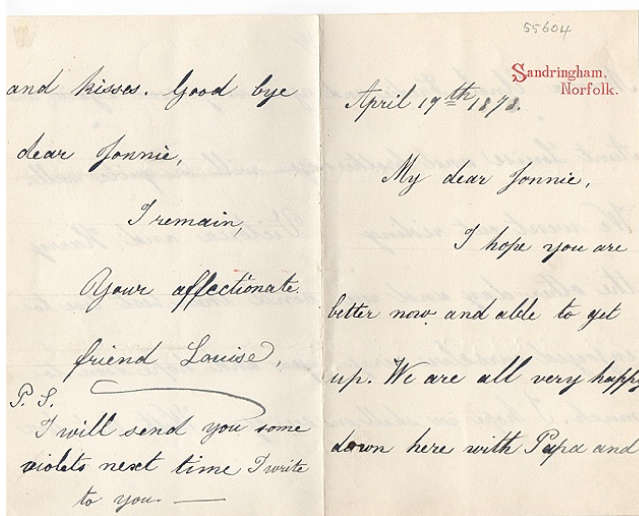 and kisses. Good bye
dear Jonnie,
I remain,
Your affectionate
friend Louise,
P.S.
I will send you some
violets next time I write
to you.
55604
Sandringham,
Norfolk.
April 19th 1878.
My dear Jonnie,
I hope you are
better now and able to get
up. We are all very happy
down here with Papa and